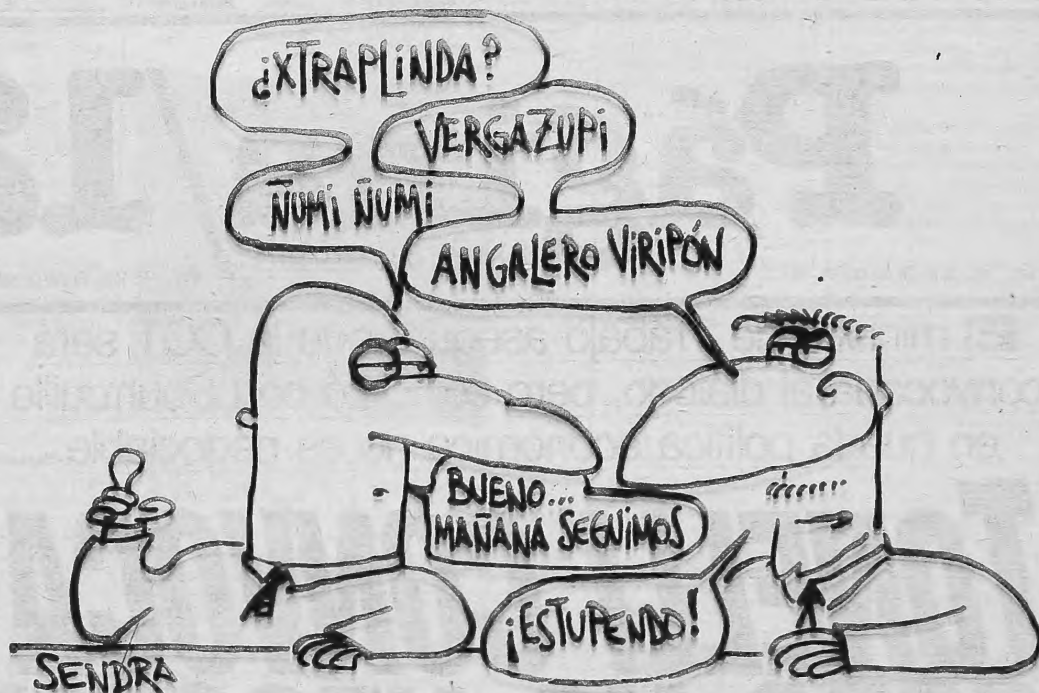 ¿XTRAPLINDA?
VERGAZUPI
ÑUMI ÑUMI
ANGALERO VIRIPÓN
BUENO...
MAÑANA SEGUIMOS
¡ESTUPENDO!
SENDRA